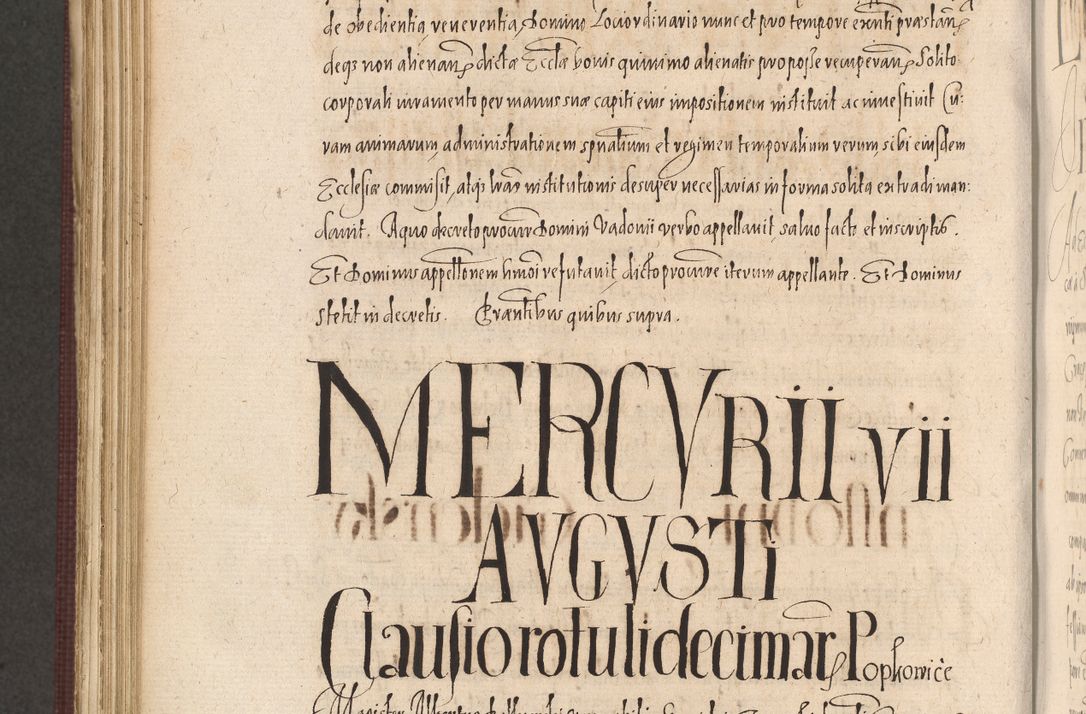 de obedientia reverentia Domino Lociordinario nunc et pro tempore exnti præstan
deqз non alienan dictæ Ecclæ bonis quinimo alienatis pro posse recuperan Solito
corporali iuramento per manus suæ capiti eius impositionem instituit ac investivit Cu:
ram animarum administrationem spualium et regimen temporalium rerum, sibi eiusdem
Ecclesiæ commisit, atqз lras institutionis desuper necessarias in forma solita extradi man:
davit. A quo decreto procur Domini Vadovii verbo appellavit, salvo facto et inscriptis.
Et Dominus appellonem hmoi refutavit, dicto procure iterum appellante. Et Dominus
stetit in decretis. Præntibus quibus supra.
MERCVRII VII
AVGVSTI
Clausio rotuli decimar Popkowice
Magister Albertus